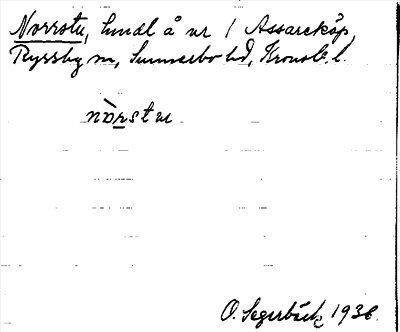 Norrstu, hmdl å nr 1 Assareköp,
Ryssby sn, Sunnerbo hd, Kronob. l.
nòrstu
O. Segerbäck 1936.